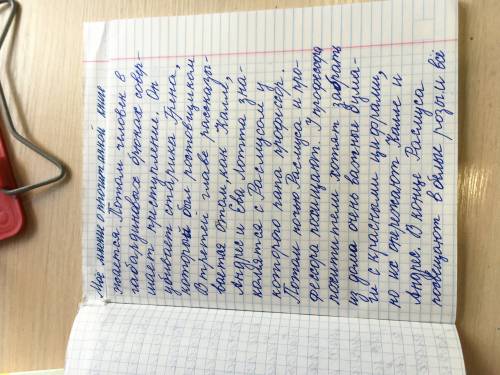 Моё мнение прочитанной
жается. Потом человек в
габардиновых брюках совер-
шает преступление. Он
убивает старика Грена,
который был ростовщиком.
В третей главе рассказы-
вается о том, как Калле,
Андрис и Ева Лотта зна-
комятся с Расмусом у
которого папа профессор.
Потом ночью Расмуса и про-
фессора похищают. У профессора
похитители хотят забрать
из дома очень важные бума-
ги с красными цифрами,
но их опережают Калле и
Андрес. В конце Расмуса
посвещают в белые розы и всё